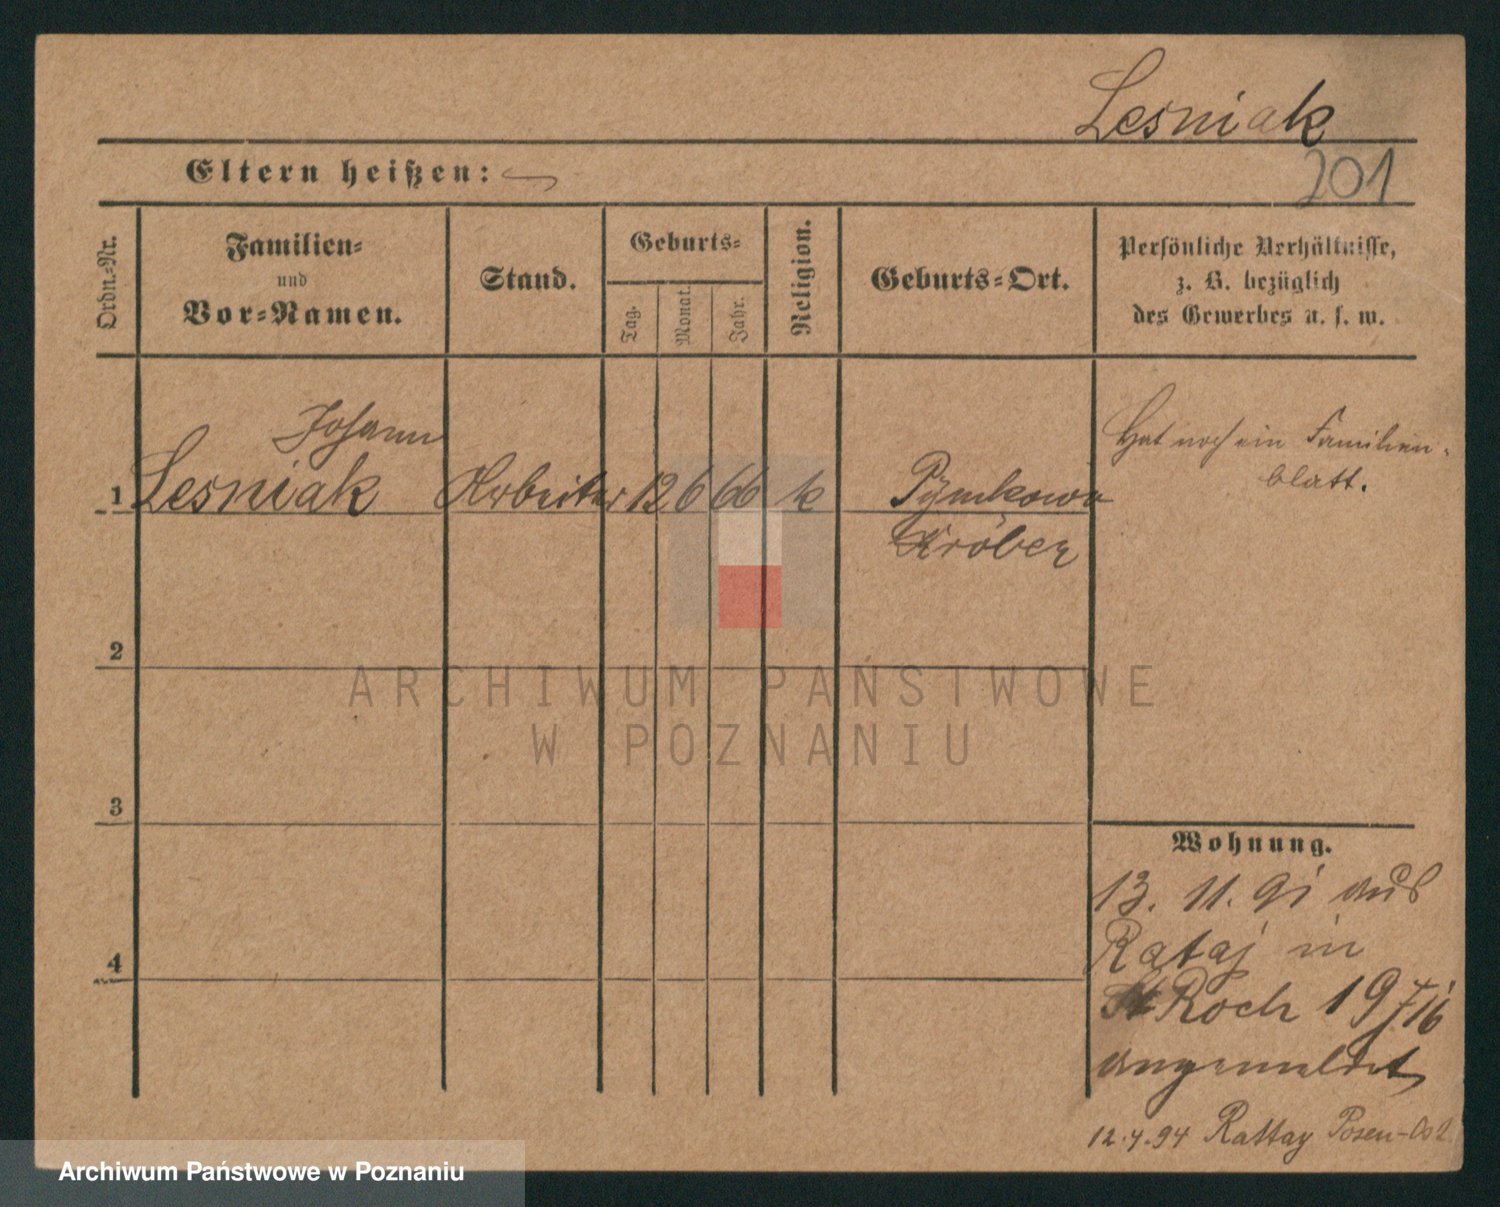 Lesniak
Eltern heißen:
201
Ordn.-Nr.
Familien-
und
Vor-Namen.
Stand.
Geburts-
Tag.
Monat.
Jahr.
Religion.
Geburts-Ort.
Persönliche Verhältnisse,
z. B. bezüglich
des Gewerbes u. s. w.
Johann
1 Lesniak Arbeiter 12 6 66 k
Kröben
Hat noch ein Familien-
blatt.
2
3
4
Wohnung.
13. 11. 91 aus
Rataj in
St Roch 19
angemeldet
12.4.94 Rattay Posen-
ARCHIWUM PAŃSTWOWE
W POZNANIU
Archiwum Państwowe w Poznaniu